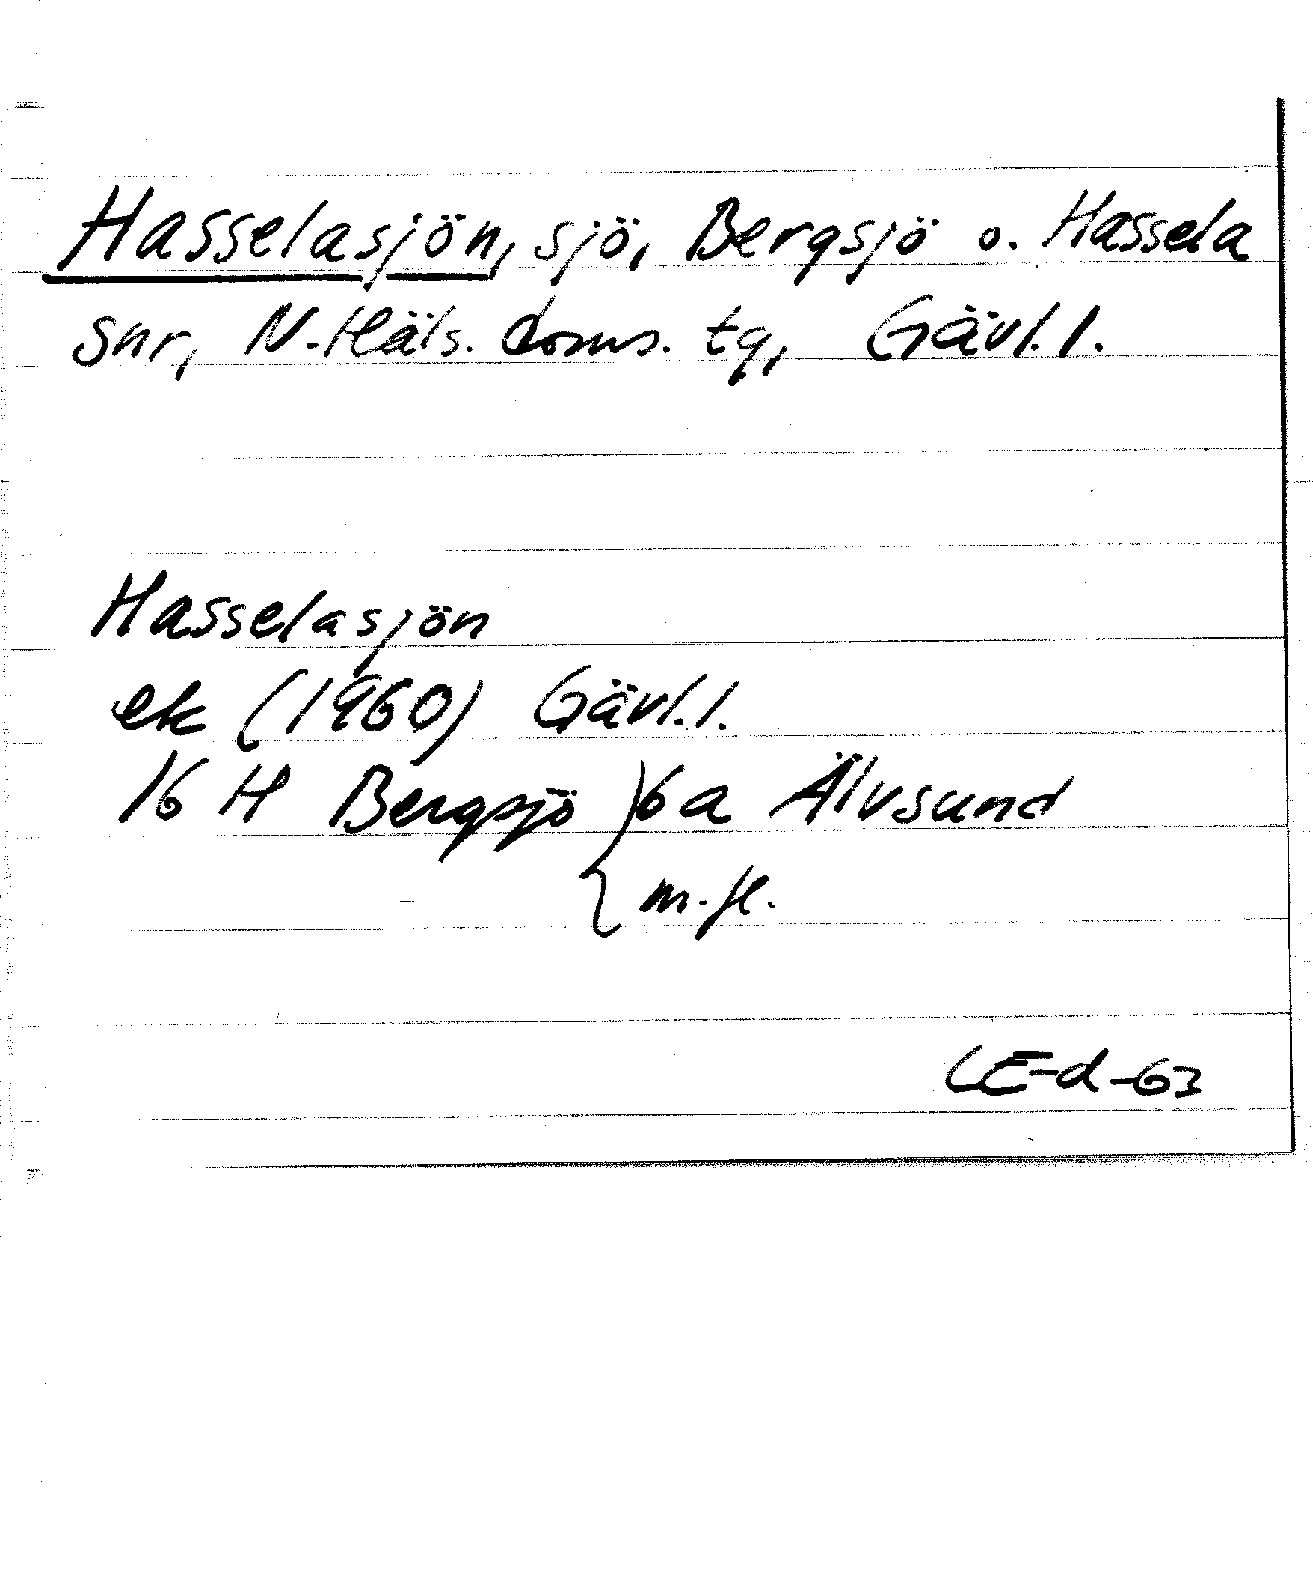 Hasselasjön, sjö, Bergsjö o. Hassela
snr, N. Häls. doms. tg, Gävl. l.
Hasselasjön
ek (1960) Gävl. l.
16 H Bergsjö } 6 a Älvsund
m. fl.
CE-d-63